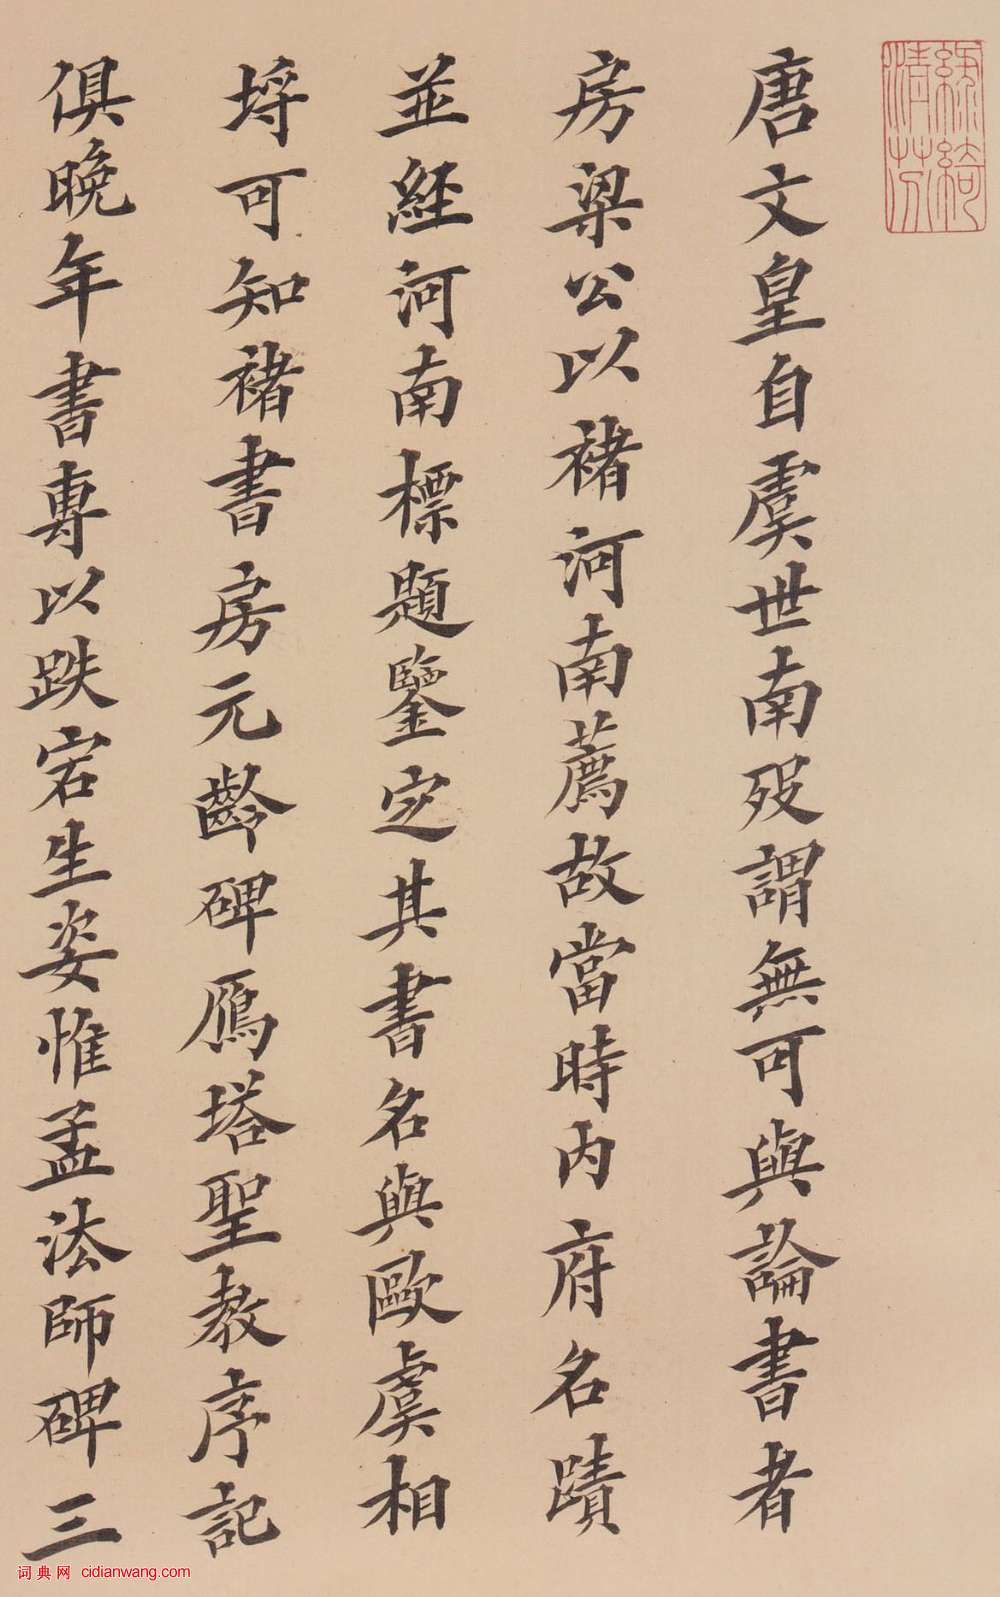 唐文皇自虞世南歿謂無可與論書者
房梁公以褚河南薦故當時内府名蹟
並經河南標題鑒定其書名與歐虞相
埒可知褚書房元齡碑鴈塔聖教序記
俱晚年書專以跌宕生姿惟孟法師碑三
词典网 cidianwang.com